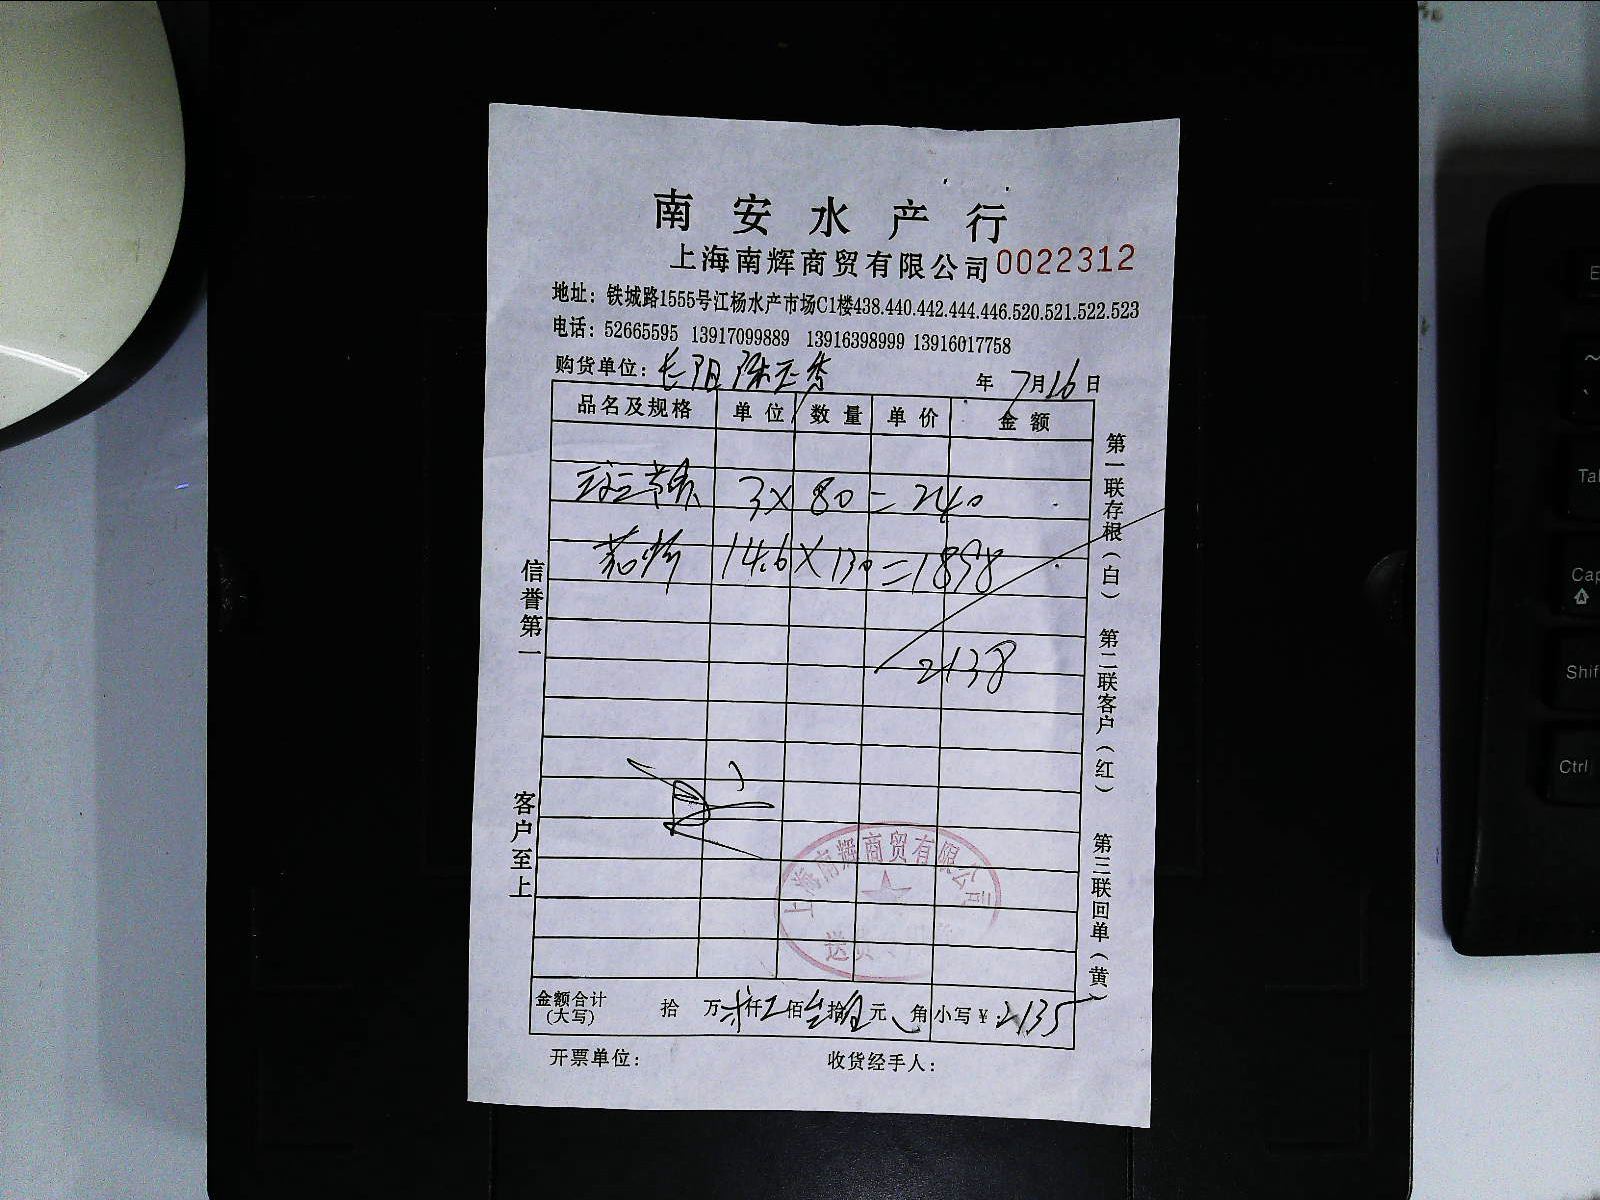 南安水产行
上海南辉商贸有限公司 0022312
地址：铁城路1555号江杨水产市场C1楼438.440.442.444.446.520.521.522.523
电话：52665595 13917099889 13916398999 13916017758
购货单位：长阳 年 7月16日
品名及规格 单位 数量 单价 金额
3×80=240
14.6×130=1898
2138
金额合计(大写) 拾 万 仟 佰 拾 元 角 小写¥: 2135
开票单位： 收货经手人：
信誉第一 客户至上
第一联存根(白) 第二联客户(红) 第三联回单(黄)
上海南辉商贸有限公司
E
Tab
Cap
Shif
Ctrl